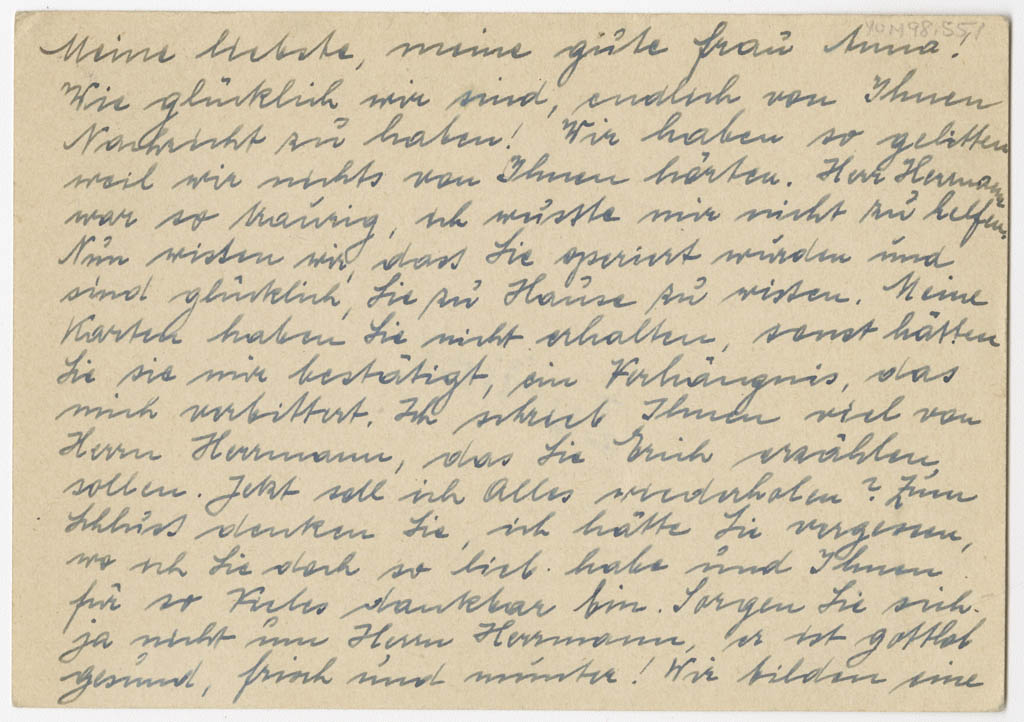 YOM98.55/1
Meine liebste, meine gute Frau Anna!
Wie glücklich wir sind, endlich von Ihnen
Nachricht zu haben! Wir haben so gelitten
weil wir nichts von Ihnen hörten. Herr Herrmann
war so traurig, ich wusste mir nicht zu helfen.
Nun wissen wir, dass Sie operiert wurden und
sind glücklich, Sie zu Hause zu wissen. Meine
Karten haben Sie nicht erhalten, sonst hätten
Sie sie mir bestätigt, ein Verhängnis, das
mich verbittert. Ich schrieb Ihnen viel von
Herrn Herrmann, das Sie Erich erzählen
sollen. Jetzt soll ich Alles wiederholen? Zum
Schluss denken Sie, ich hätte Sie vergessen,
wo ich Sie doch so lieb habe und Ihnen
für so Vieles dankbar bin. Sorgen Sie sich
ja nicht um Herrn Herrmann, er ist gottlob
gesund, frisch und munter! Wir bilden eine